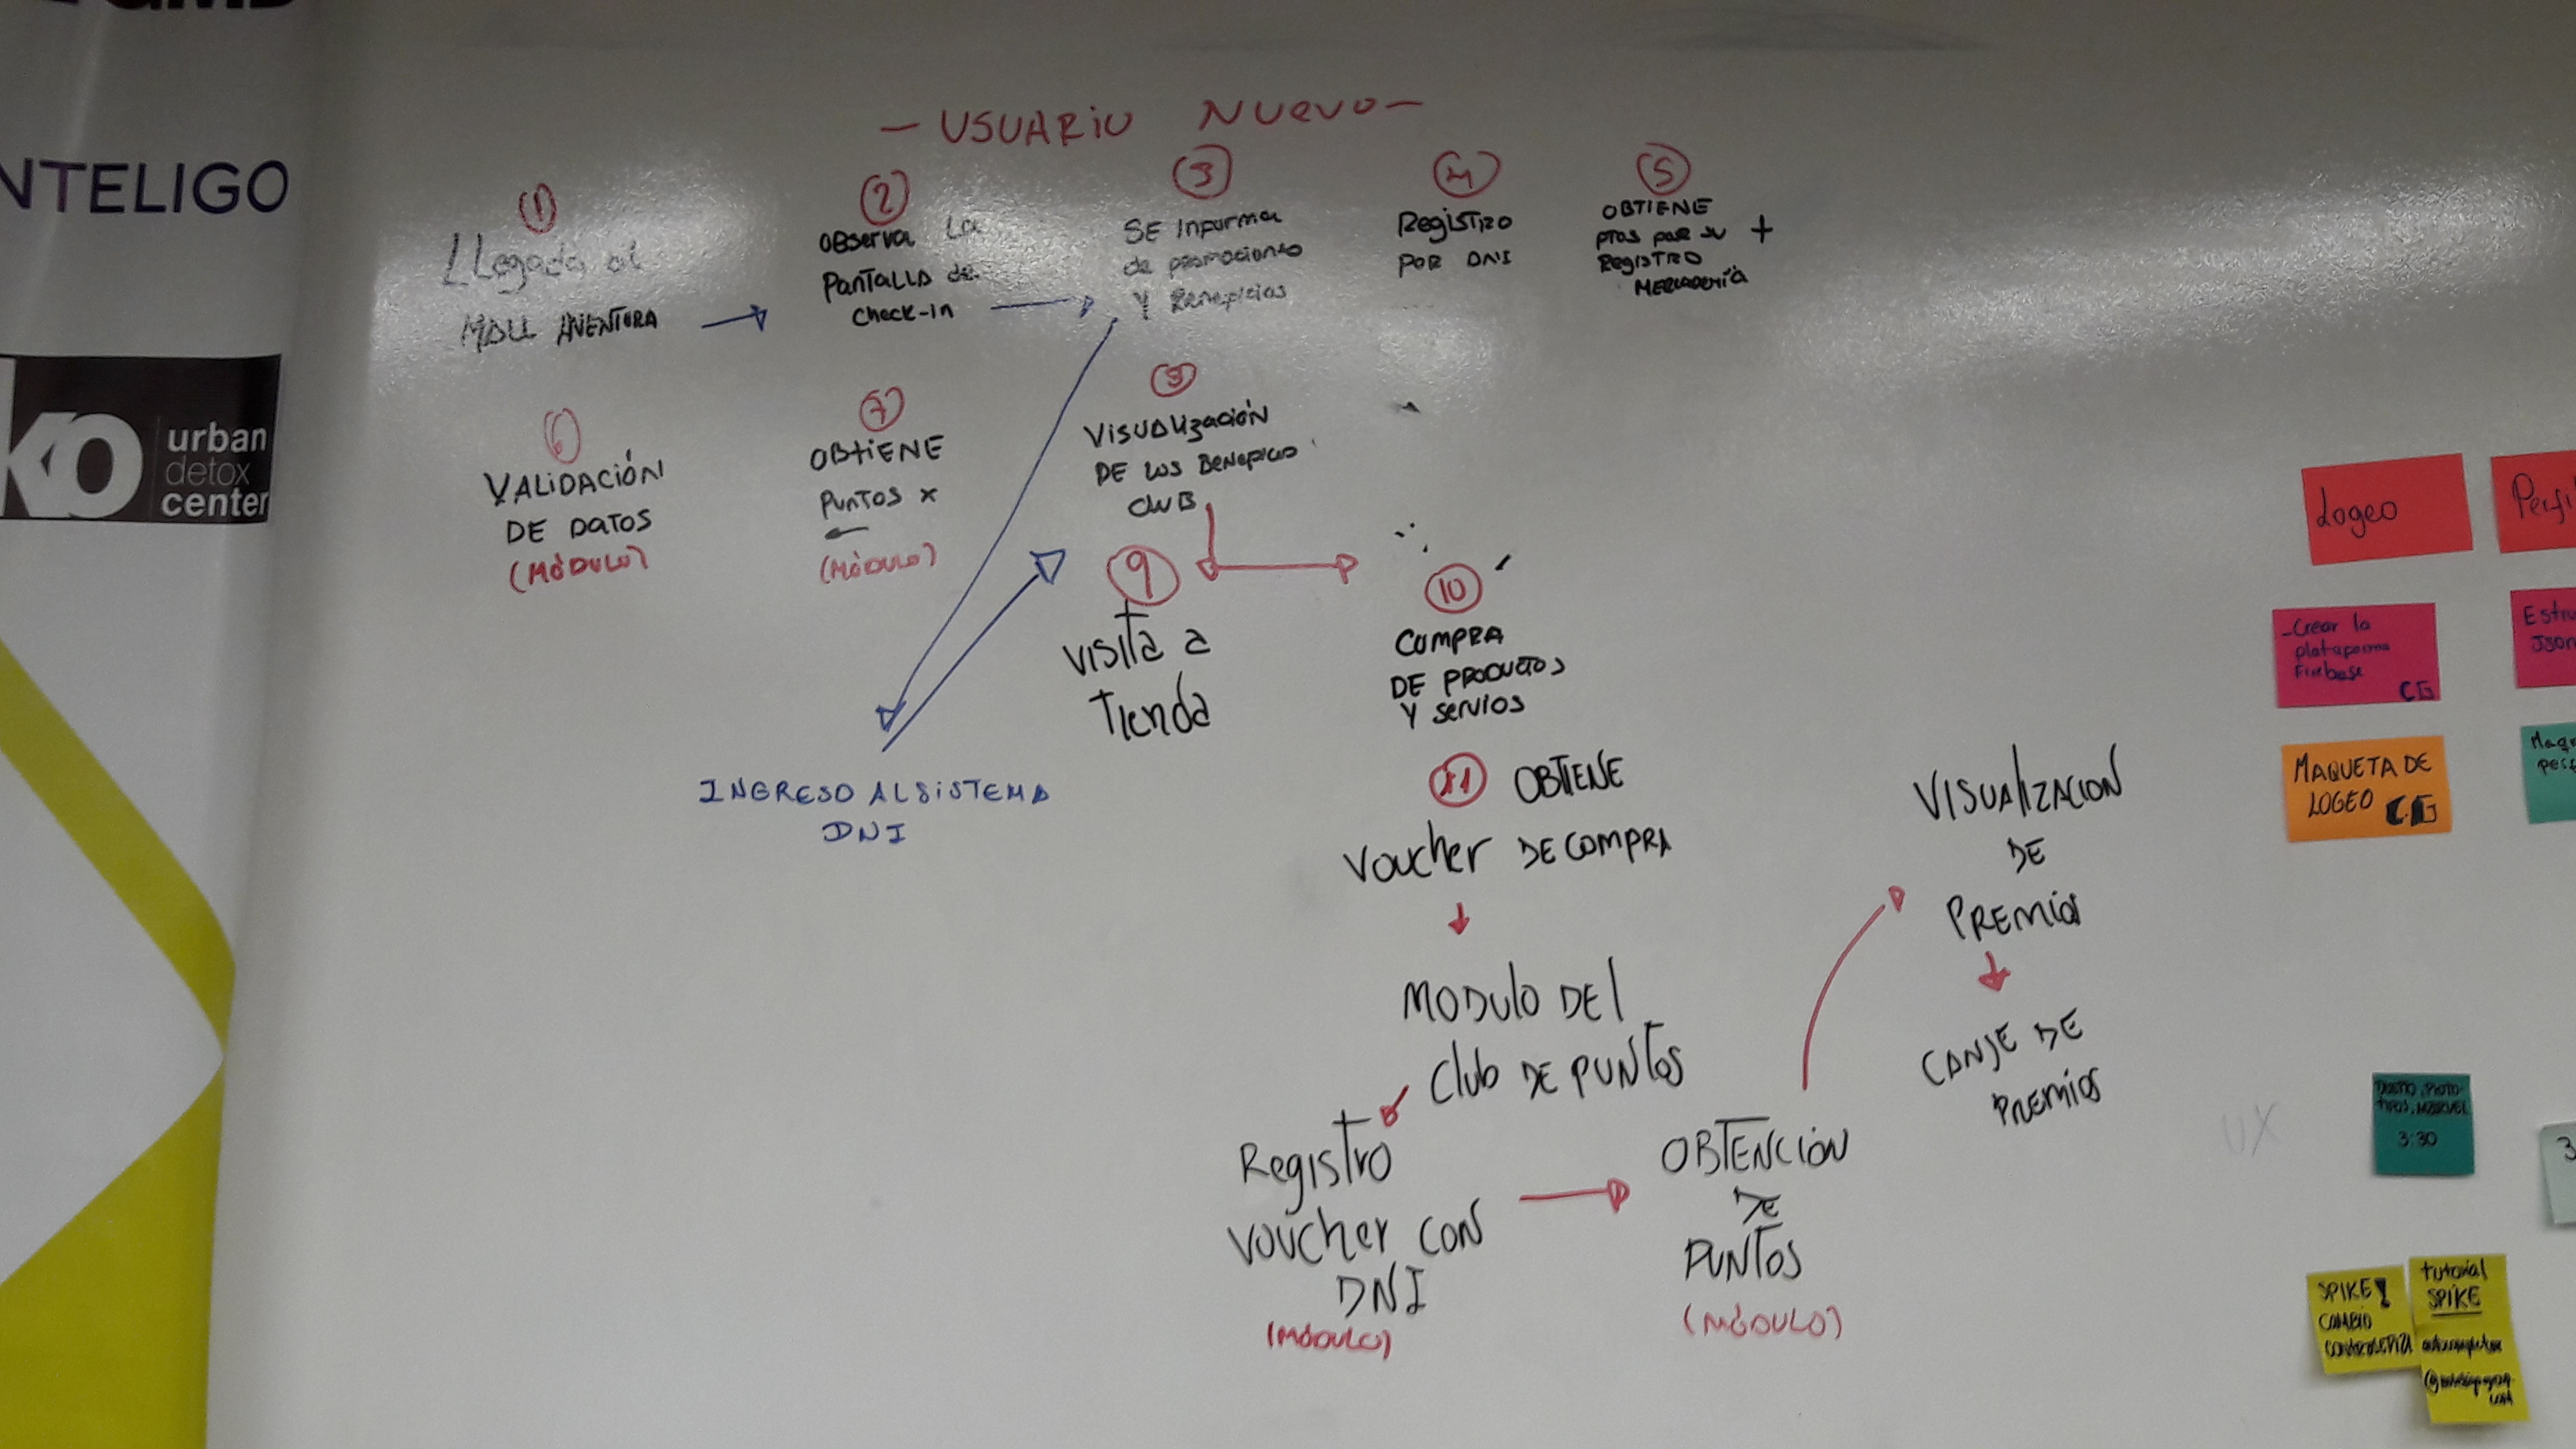 NTELIGO
KO urban
detox
center
— USUARIO NUEVO —
1
Llegada al
MALL AVENTURA
2
OBserva La
PANTALLA de
Check-in
3
SE Informa
de promociones
Y Beneficios
4
RegISTRO
POR DNI
5
OBTIENE
ptos por su +
RegISTRO
MERCADERÍA
6
VALIDACIÓN
DE DATOS
(MÓDULO)
7
OBTIENE
PUNTOS x
(MÓDULO)
VISUALIZACIÓN
DE LOS BENEFICIO
CLUB
9
VISITA a
TIENDA
10
COMPRA
DE PRODUCTOS
Y SERVIOS
INGRESO AL SISTEMA
DNI
11 OBTIENE
VOUCHER DE COMPRA
MODULO DEL
Club DE PUNTOS
RegISTRO
VOUCHER CON
DNI
(MÓDULO)
OBTENCIÓN
DE
PUNTOS
(MÓDULO)
VISUALIZACION
DE
PREMIOS
CANJE DE
PREMIOS
Logeo
Perfi
-Crear la
plataforma
Firebase
CG
Estru
Json
MAQUETA DE
LOGEO CG
Maqu
UX
3:30
3
SPIKE!
CAMBIO
tutorial
SPIKE